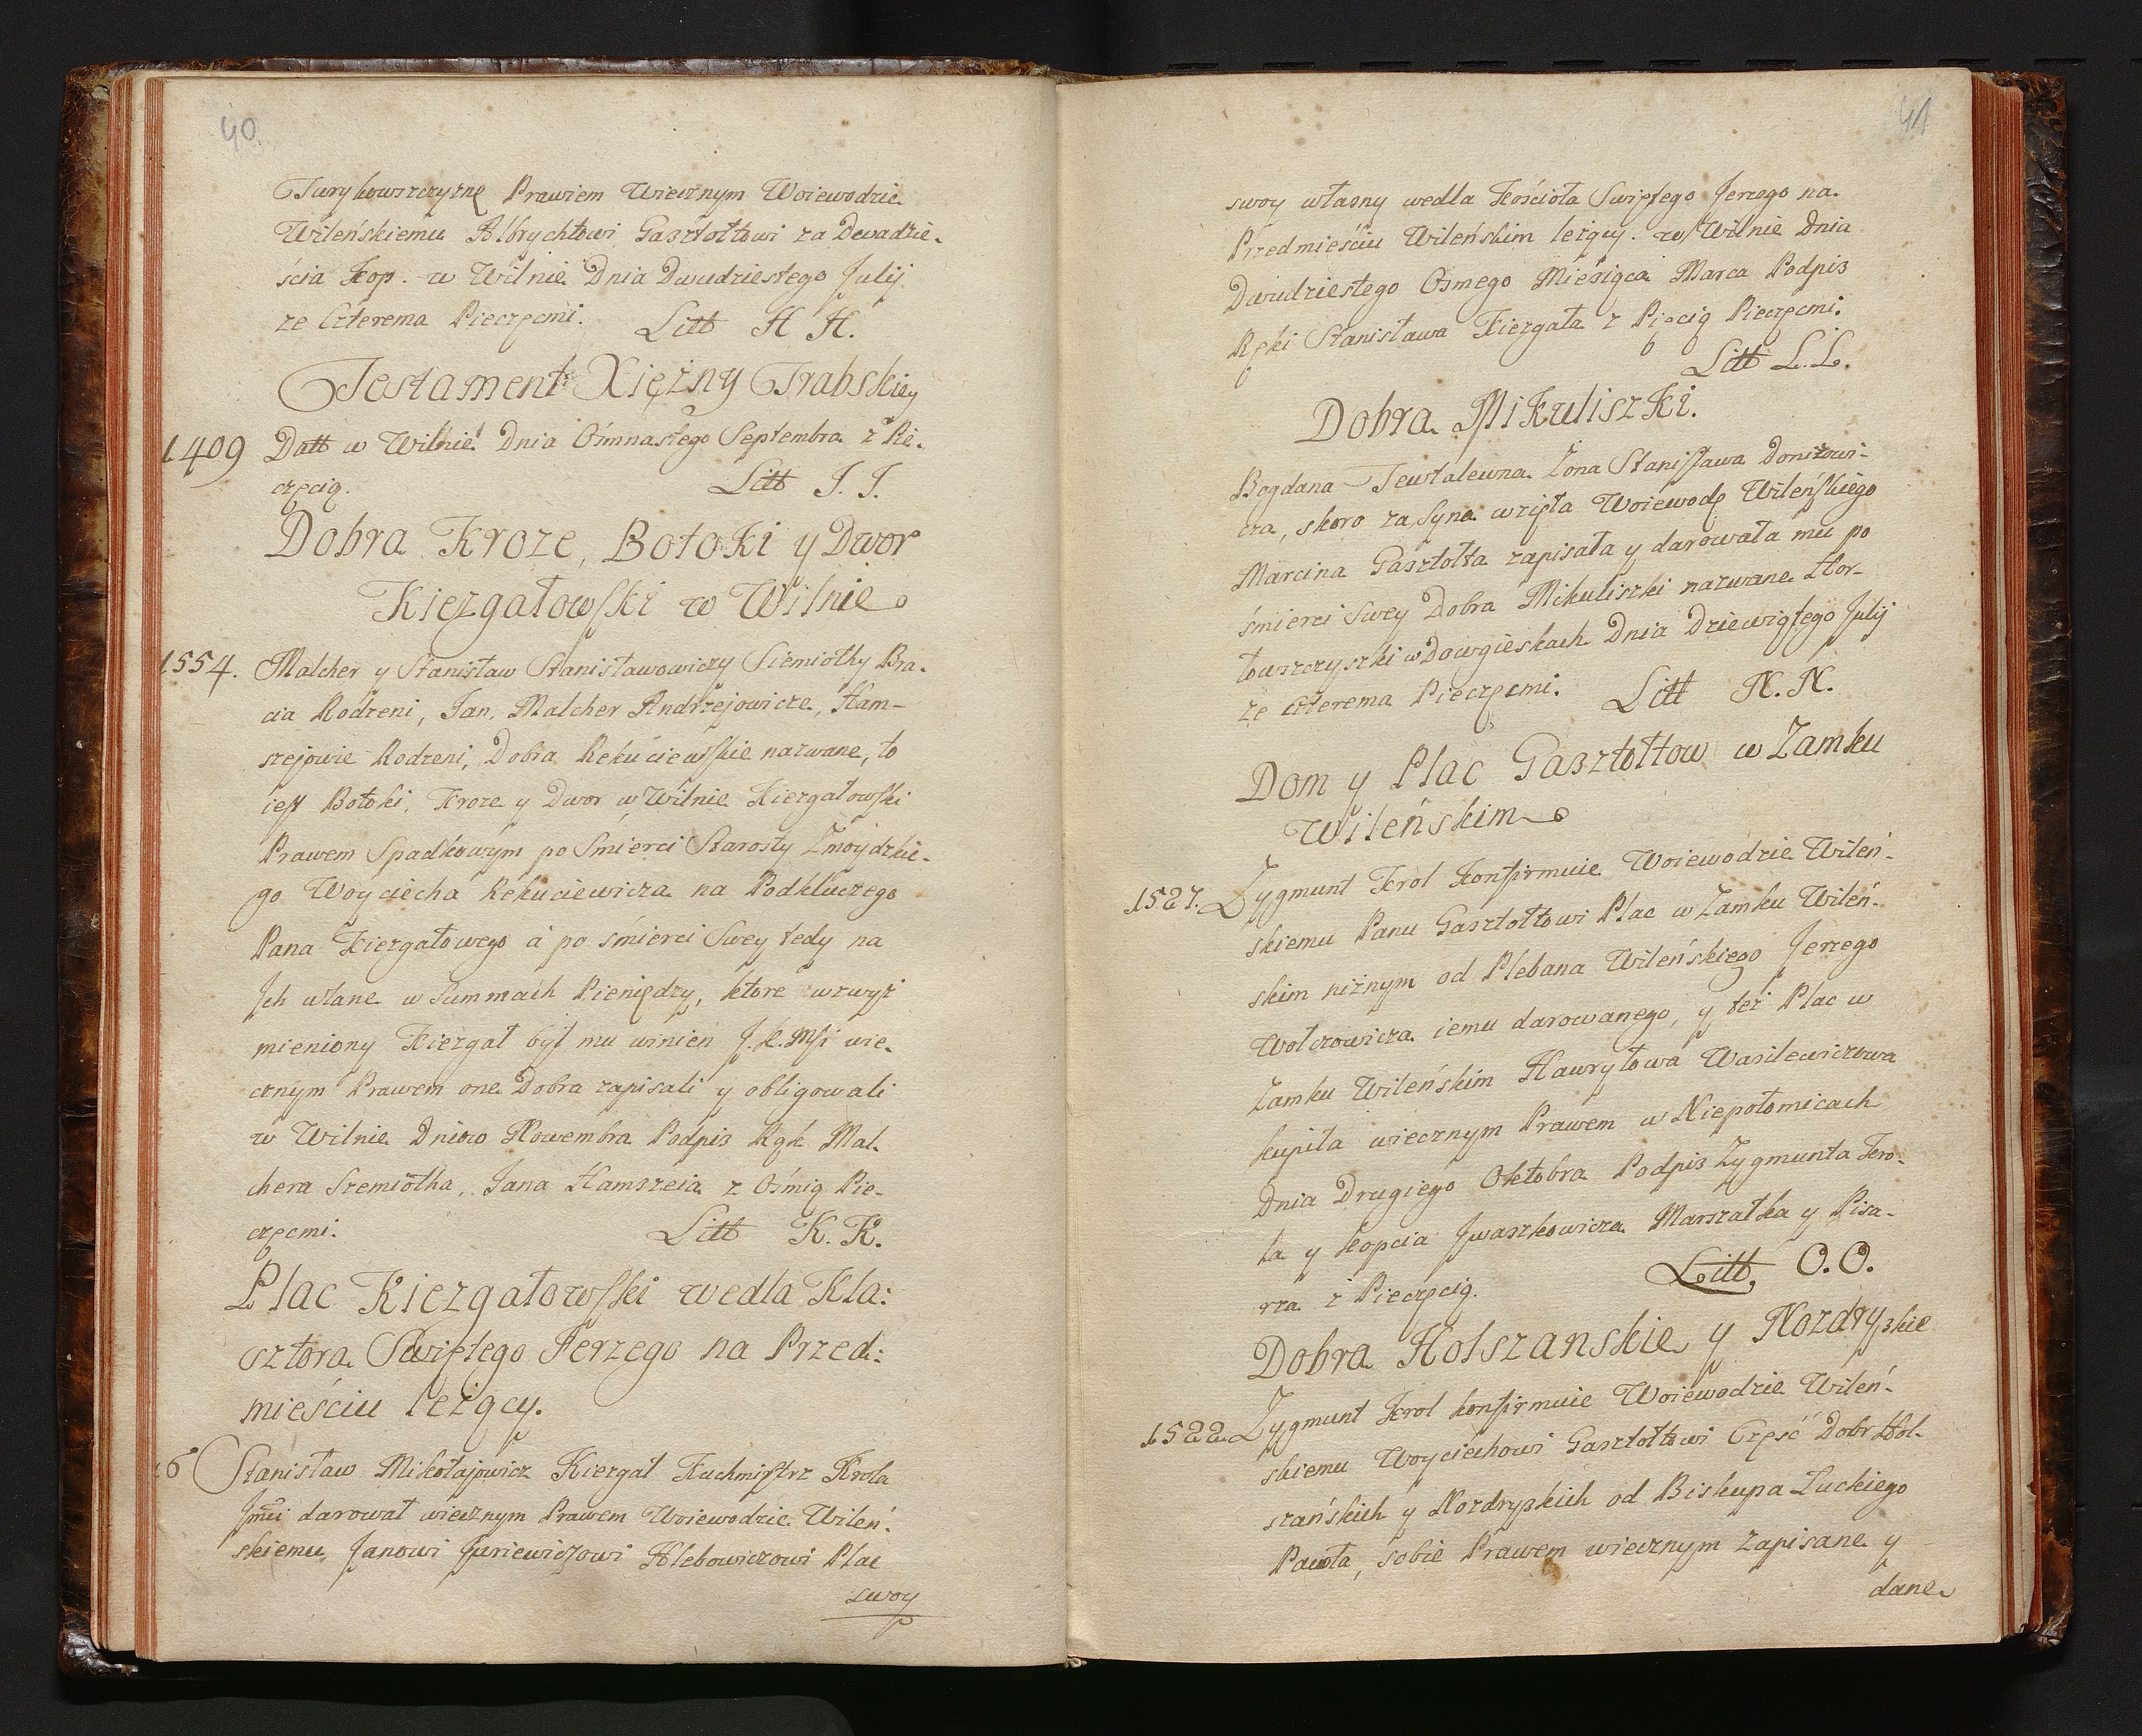 40
Jurykowszczyznę Prawiem Wiecznym Woiewodzie
Wileńskiemu Albrychtowi Gasztołtowi za Dwadzie-
ścia Kop. w Wilnie Dnia Dwudziestego Julij
ze Czterema Pieczęcmi. Litt H H.
Testament Xiężny Trabskiey
1409 Datt w Wilnie Dnia Osmnastego Septembra z Pie-
częcią. Litt J. J.
Dobra Kroze, Botoki y Dwor
Kiezgatowski w Wilnie
1554. Malcher y Stanisław Stanisławowiczy Siemiotky Bra-
cia Rodzeni, Jan, Malcher Andrzejowicze, Ham-
szejowie Rodzeni, Dobra Rekuciewskie nazwane, to
iest Botoki, Kroze y Dwor w Wilnie Kiezgatowski
Prawem Spadkowym po Smierci Starosty Zmoydzkie-
go Woyciecha Rekuciewicza na Podkluczego
Pana Kiezgatowego a po śmierci Swey tedy na
Ich wlane w Summach Pieniędzy, ktore wzwyż
mieniony Kiezgat był mu winien J. K. Mśi wie-
cznym Prawem one Dobra zapisali y obligowali
w Wilnie Dnia 10 Nowembra Podpis Rąk Mal-
chera Szemiotha, Jana Hamszeia z Ośmią Pie-
częcmi. Litt K. K.
Plac Kiezgatowski wedla Kla:
sztora Swiętego Jerzego na Przed:
mieściu leżący.
6 Stanisław Mikołajowicz Kiezgat Kuchmistrz Krola
Jmći darował wiecznym Prawem Woiewodzie Wileń-
skiemu Janowi Juriewiczowi Hlebowiczowi Plac
swoy
41
swoy własny wedla Kościoła Swiętego Jerzego na
Przedmieściu Wileńskim leżący. w Wilnie Dnia
Dwudziestego Osmego Miesiąca Marca Podpis
Ręki Stanisława Kiezgata z Pięcią Pieczęcmi.
Litt L. L.
Dobra Mikuliszki.
Bogdana Tewtalewna Zona Stanisława Doniżowi-
cza, skoro za Syna wzięła Woiewodę Wileńskiego
Marcina Gasztołta zapisała y darowała mu po
śmierci Swey Dobra Mikuliszki nazwane Hor-
towszczyszki w Dowgieskach Dnia Dziewiątego Julij
ze czterema Pieczęcmi. Litt N. N.
Dom y Plac Gasztołtow w Zamku
Wileńskim
1527. Zygmunt Krol Konfirmuie Woiewodzie Wileń-
skiemu Panu Gasztołtowi Plac w Zamku Wileń-
skim niżnym od Plebana Wileńskiego Jerzego
Wołczowicza iemu darowanego, y też Plac w
Zamku Wileńskim Hawryłowa Wasilewiczowa
kupiła wiecznym Prawem w Niepołomicach
Dnia Drugiego Oktobra Podpis Zygmunta Kro-
la y Kopcia Jwaszkowicza Marszałka y Pisa-
rza z Pieczęcią. Litt O. O.
Dobra Holszanskie y Nozdryskie
1522. Zygmunt Krol konfirmuie Woiewodzie Wileń-
skiemu Woyciechowi Gasztołtowi Część Dobr Hol-
szańskich y Nozdryskich od Biskupa Łuckiego
Pawła, sobie Prawem wiecznym zapisane y
dane